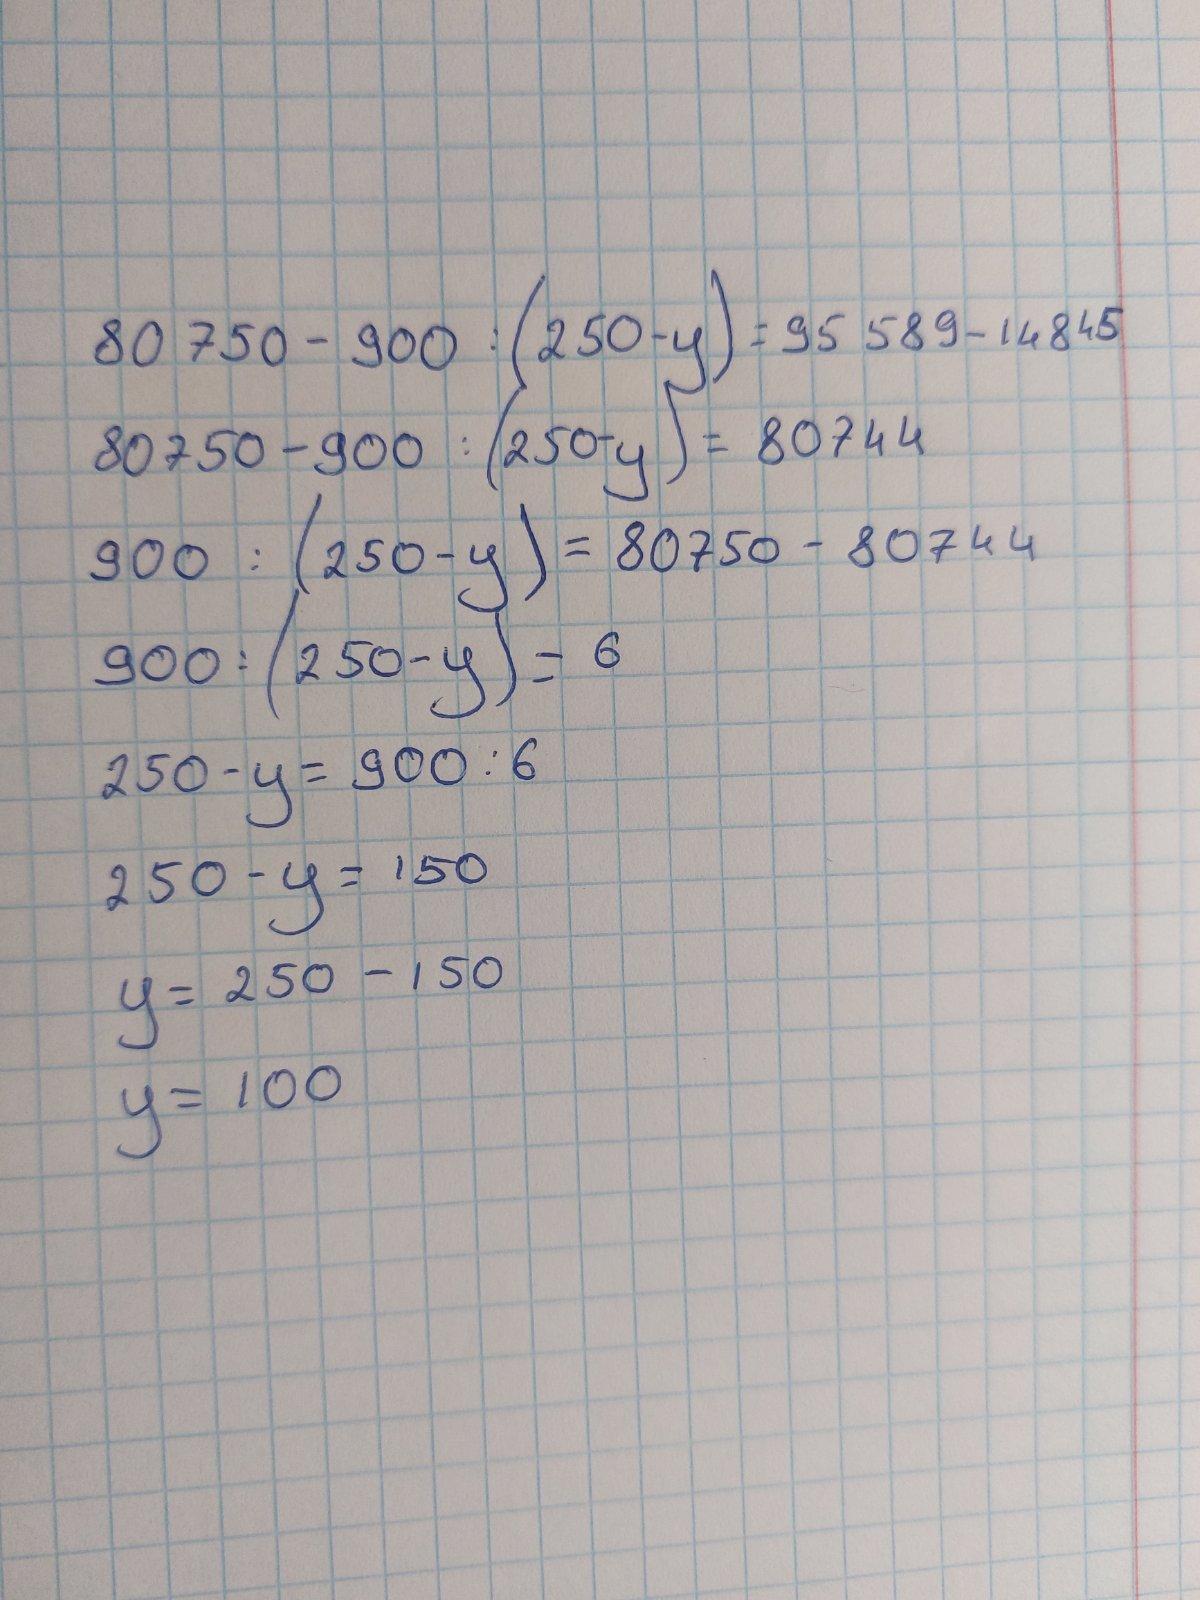 80 750 - 900 : (250 - y) = 95 589 - 14845
80750 - 900 : (250 - y) = 80744
900 : (250 - y) = 80750 - 80744
900 : (250 - y) = 6
250 - y = 900 : 6
250 - y = 150
y = 250 - 150
y = 100